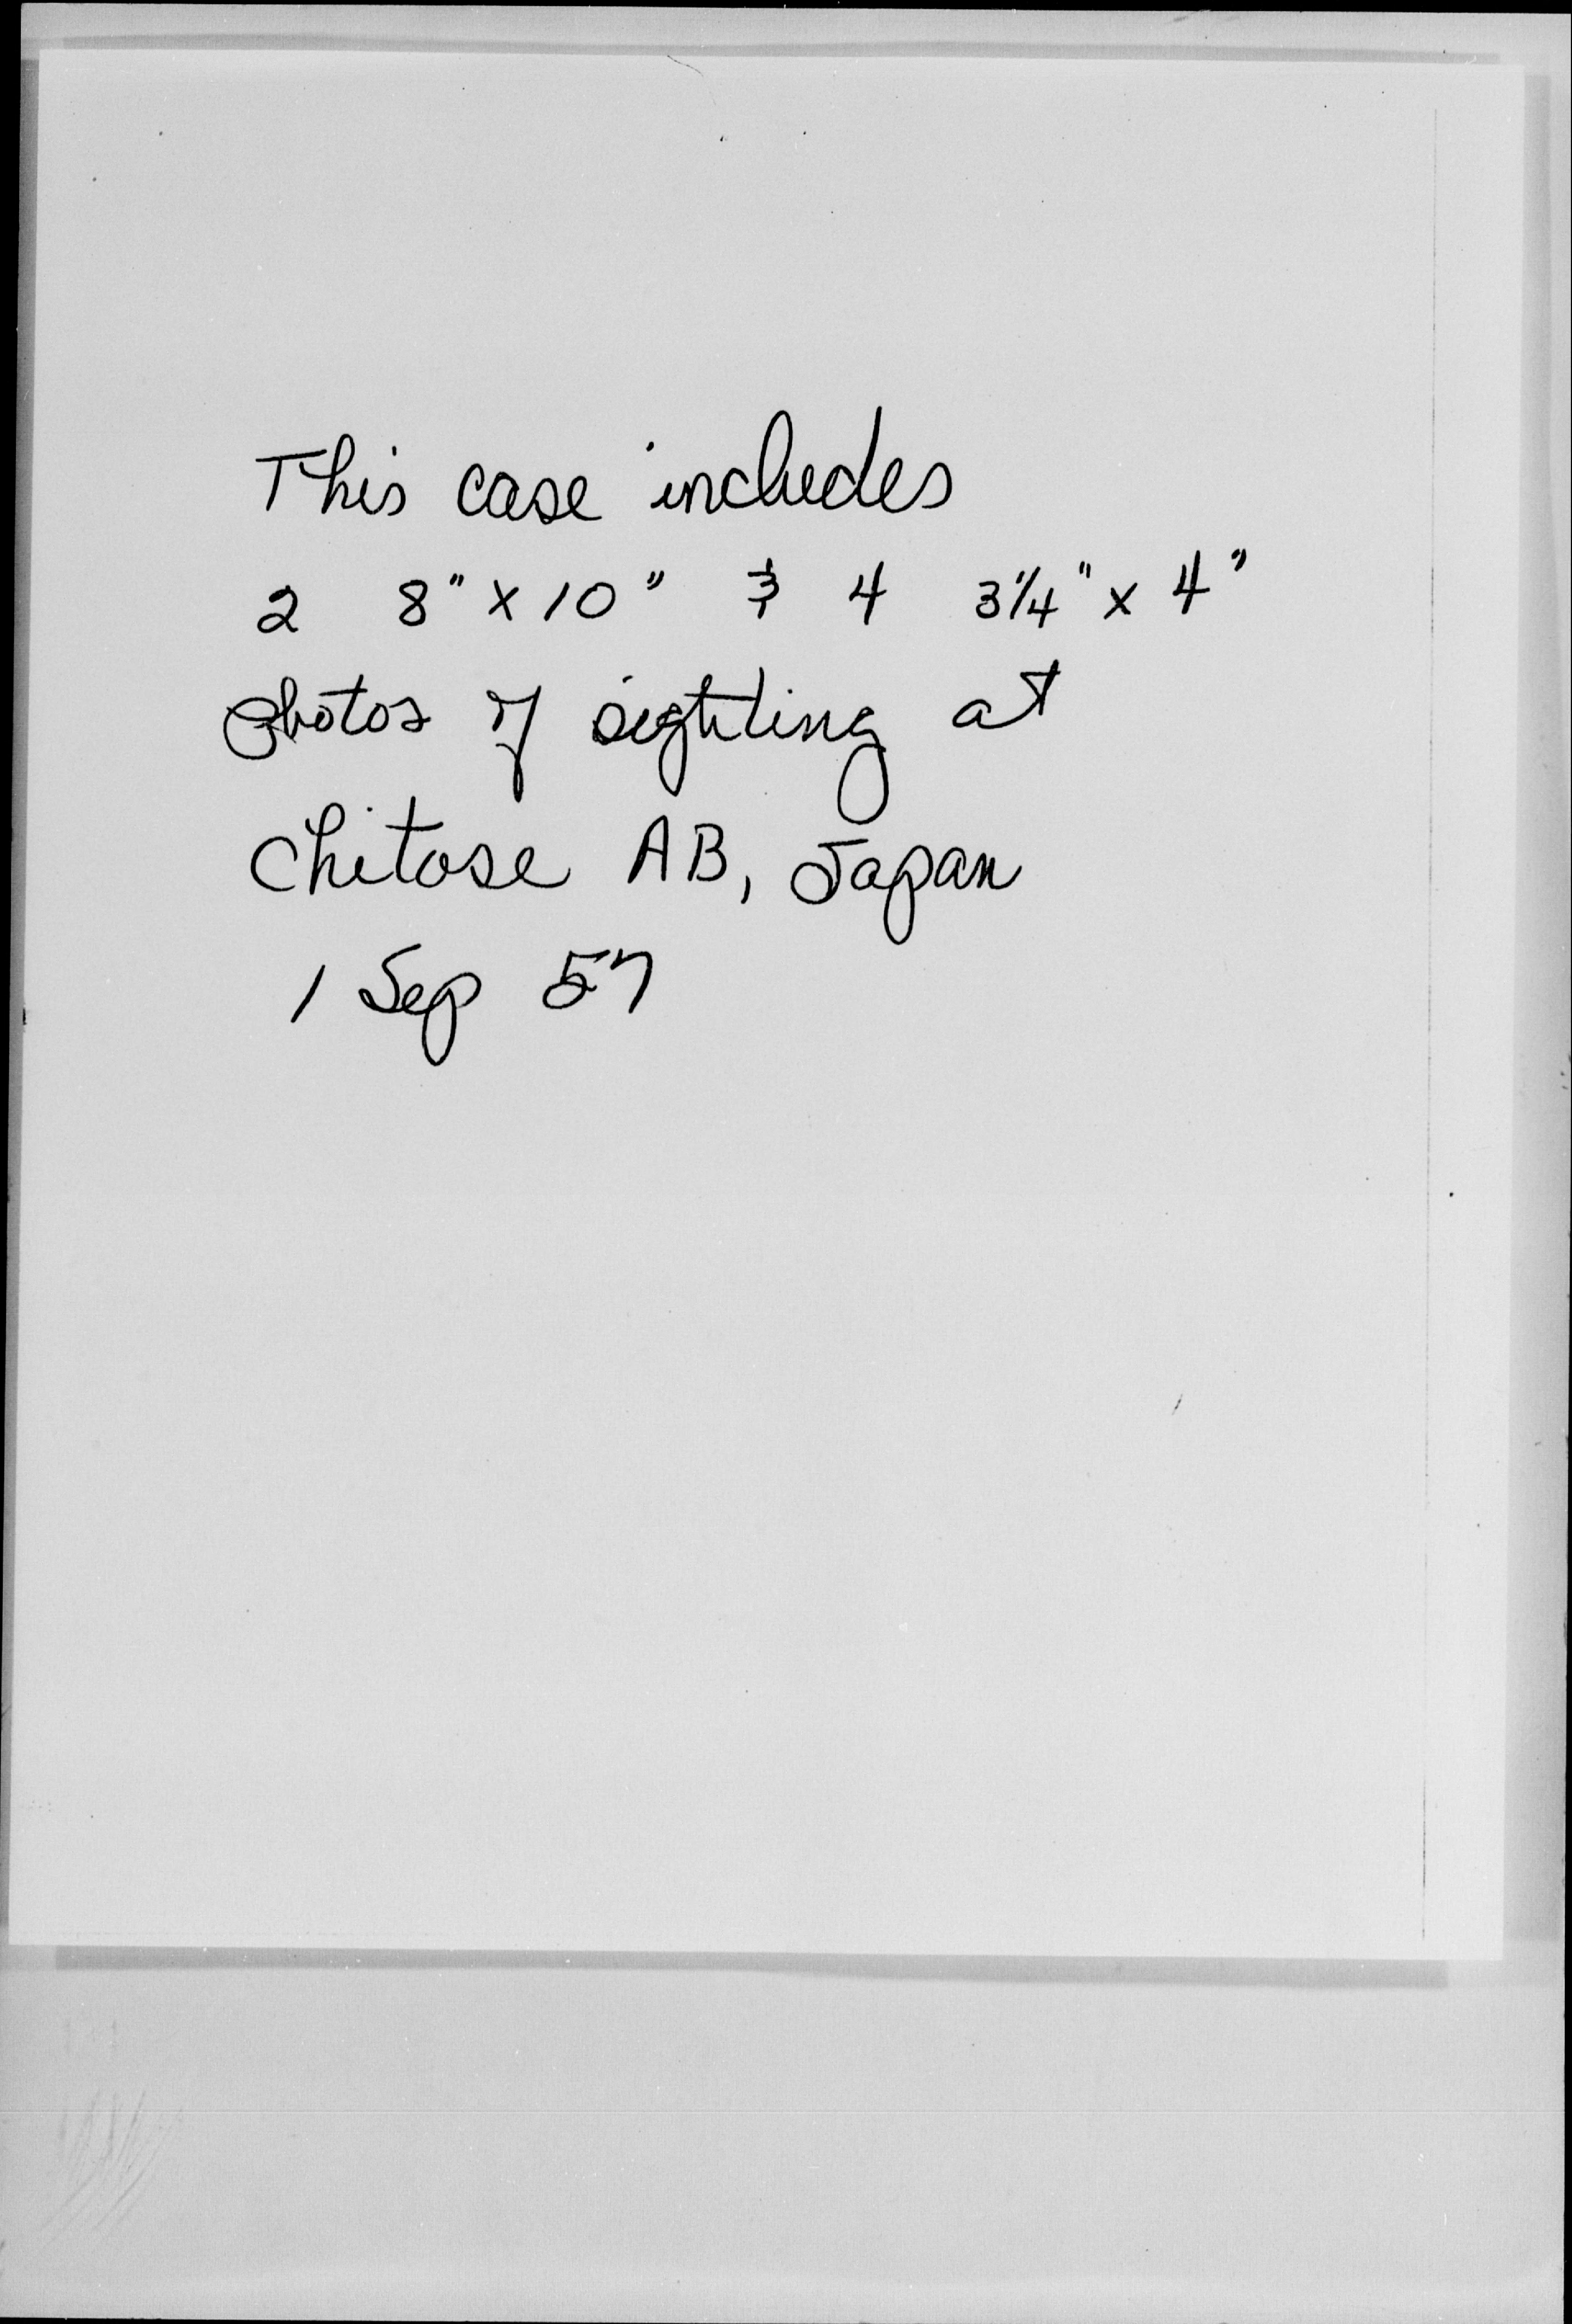 This case includes
2 8" x 10" & 4 3 1/4" x 4"
photos of sighting at
Chitose AB, Japan
1 Sep 57